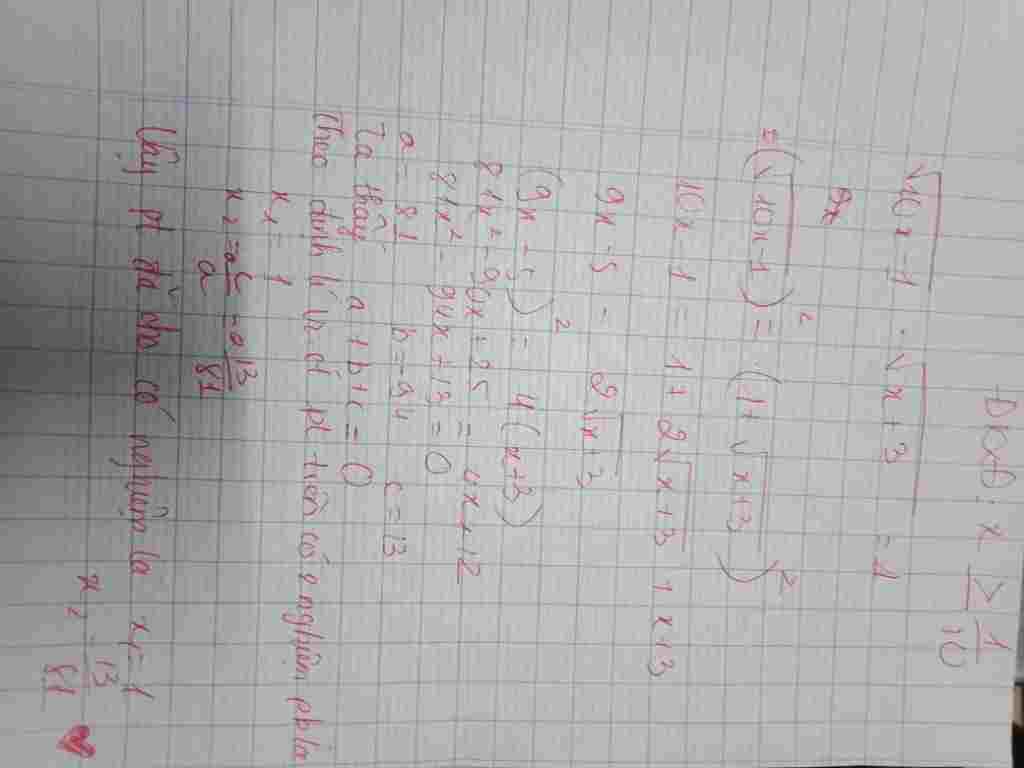 ĐKXĐ: x ≥ 1/10
√10x-1 - √x+3 = 1
(√10x-1)² = (1+√x+3)²
10x-1 = 1+2√x+3 + x+3
9x-5 = 2√x+3
(9x-5)² = 4(x+3)
81x² - 90x + 25 = 4x+12
81x² - 94x + 13 = 0
a = 81 b = -94 c = 13
Ta thấy a+b+c = 0
Theo định lí vi-ét pt trên có 2 nghiệm pb là
x₁ = 1
x₂ = c/a = 13/81
Vậy pt đã cho có nghiệm là x₁=1
x₂ = 13/81